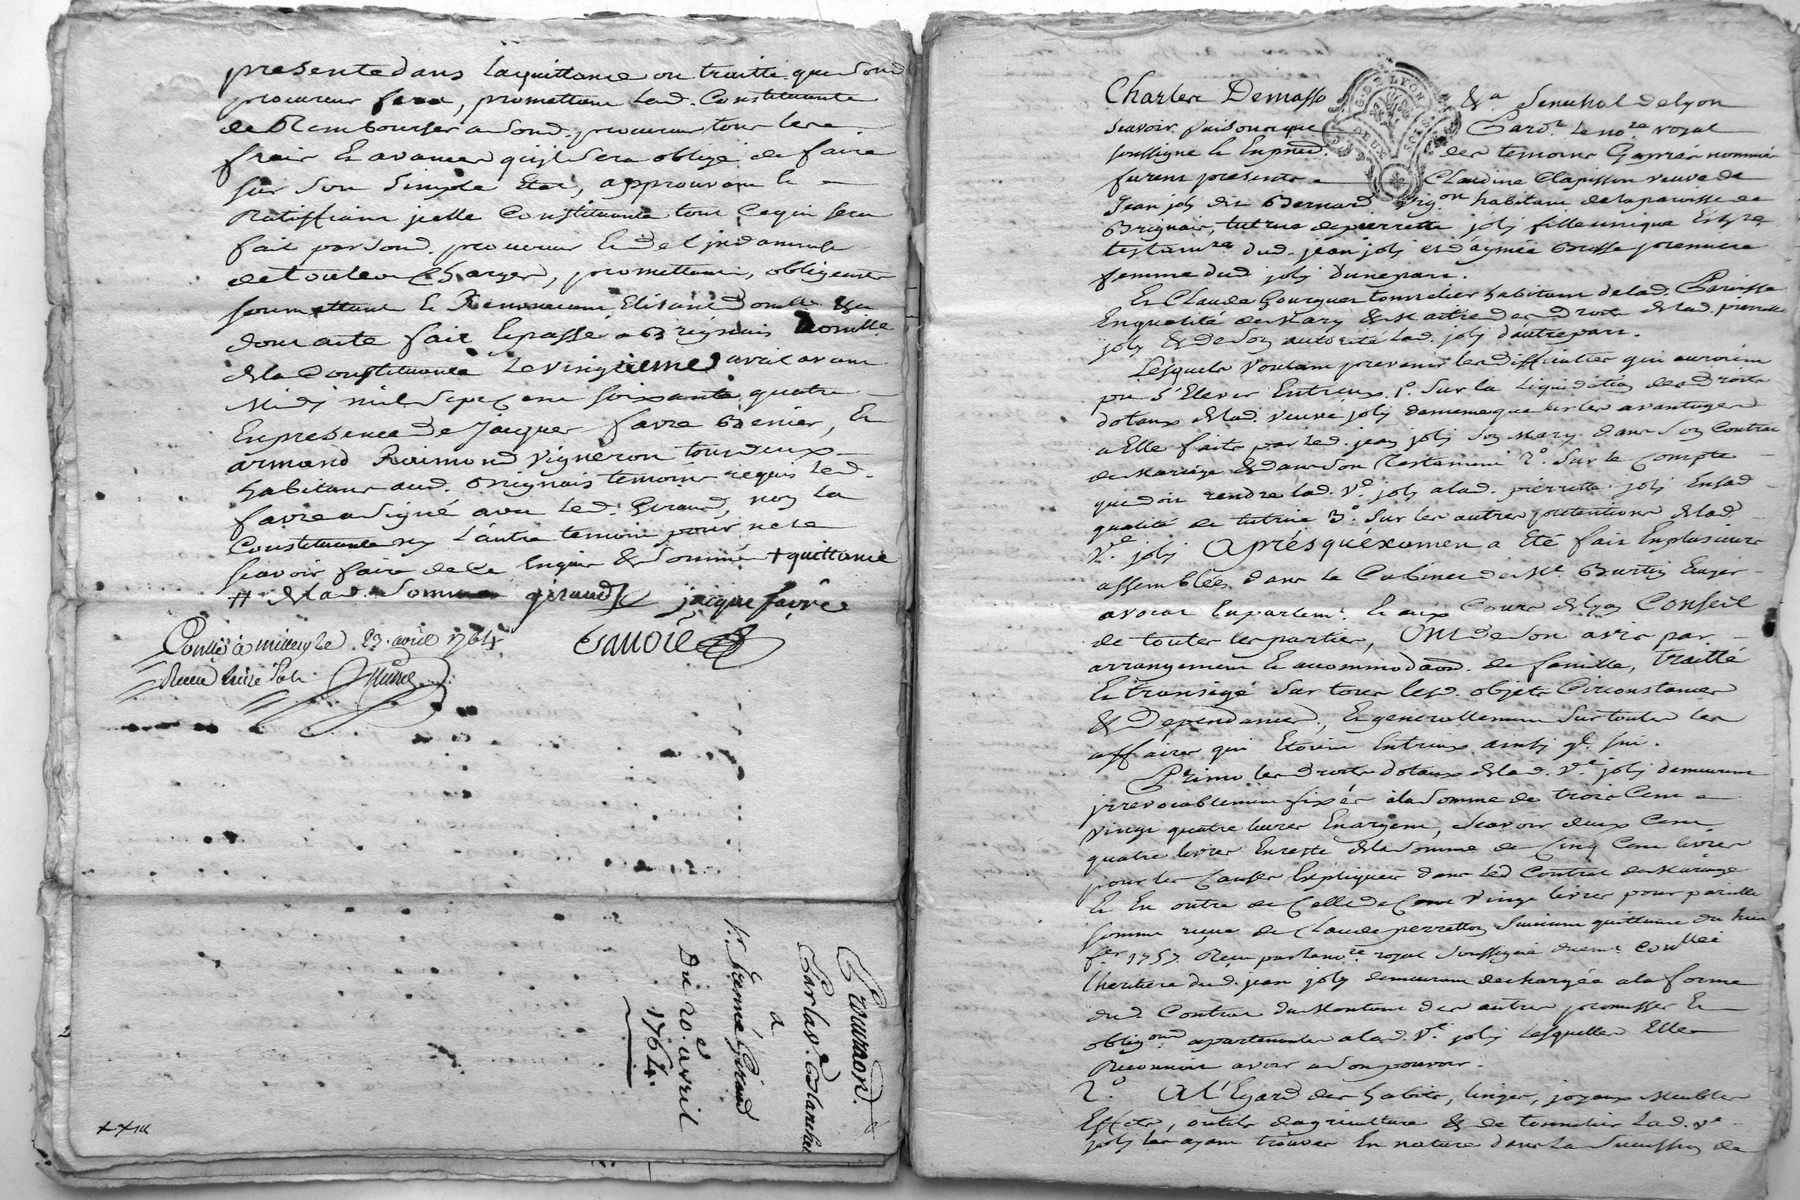 presente dans la quittance ou traitté que Sond
procureur fera, promettant lad. Constituante
de Rembourser a Sond. procureur tous les
fraix et avances qu'il Sera obligé de faire
sur Son Simple Etat, approuvant et
Ratiffiant jcelle Constituante tout ce qui sera
fait par Sond. procureur et de l'jndamniser
de toutes Charges, promettant, obligeant
soumettant et Renonceant, Elisant domlle &a
dont acte fait et passé a Brignais domille
de la Constituante Le vingtieme avril avant
Midy mil Sept Cent soixante quatre
En presence de Jacques favre Benier, et
armand Raimond Vigneron tous deux
habitans aud. Brignais temoins requis Led.
favre a Signé avec Led. Giraud, non la
Constituante ny L'autre temoin pour ne le
scavoir faire de ce Enquis & Sommé + quittance
# de lad. Somme giraud jacque favre
Conllé a millery le 23. avril 1764
Receu treize Sols
Procuraon.
Par la ve. Blanchet
a
Sr. Giraud
Du 20e avril
1764.
Charles Demasso &a Senechal de Lyon
scavoir faisons que Pardt. Le nore royal
soussigné et En presce. des temoins apprés nommés
furent presents Claudine Clapisson veuve de
Jean joly dit Bernard Vigon habitant de la paroisse de
Brignais, tutrice de pierrette joly fille unique et
testamre dud. jean joly et d'aymée Brosse premiere
femme dud joly d'une part.
Et Claude Gourguet tonnelier habitant de lad. Paroisse
En qualité de Mary & Maitre des droits de lad. pierrette
joly & de Son autorité lad. joly d'autre part.
Lesquels Voulant prevenir les difficultés qui auroient
pu S'Elever Entreux 1o. Sur la Liquidation des Droits
dotaux de lad. veuve joly de meme que sur les avantages
a Elle faits par led. jean joly Son Mary dans Son Contrat
de Mariage & dans Son Testament 2o. Sur le Compte
que doit rendre lad. Ve. joly a lad. pierrette joly En sad.
qualité de tutrice 3o. Sur les autres pretentions de lad.
Ve. joly Aprés qu'examen a Eté fait En plusieurs
assemblées dans le Cabinet de Me.
avocat En parlemt. et aux Cours de Lyon Conseil
de toutes les parties, Ont de Son avis par
arrangement et accommodaon. de famille, traitté
et transigé Sur tous lesd. objets Circonstances
& Dependances, et generallement Sur toutes les
affaires qui Etoient Entreux ainsy qe. suit.
Primo les Droits dotaux de lad. Ve. joly demeurent
jrrevocablement fixés a la Somme de trois Cent
vingt quatre livres En argent, Scavoir deux Cent
quatre livres En reste de la Somme de Cinq Cent livres
pour les Causes Expliquées dans led Contrat de Mariage
et En outre de Celle de Cent Vingt livres pour pareille
somme reçue de Claude perrotton Suivant quittance du huit
fer. 1757. Reçu par le nore. royal Soussigné duemt. conllée
l'heritiere dud. jean joly demeurant dechargée a la forme
dud. Contrat du Montant des autres promesses et
obligons apartenantes a lad. Ve. joly Lesquelles Elle
Reconnoit avoir a Son pouvoir.
2o. A L'Egard des habits, linges, joyaux Meubles
Effets, outils d'agriculture & de tonnelier Lad. Ve.
joly les ayant trouvés En nature dans la Succession de